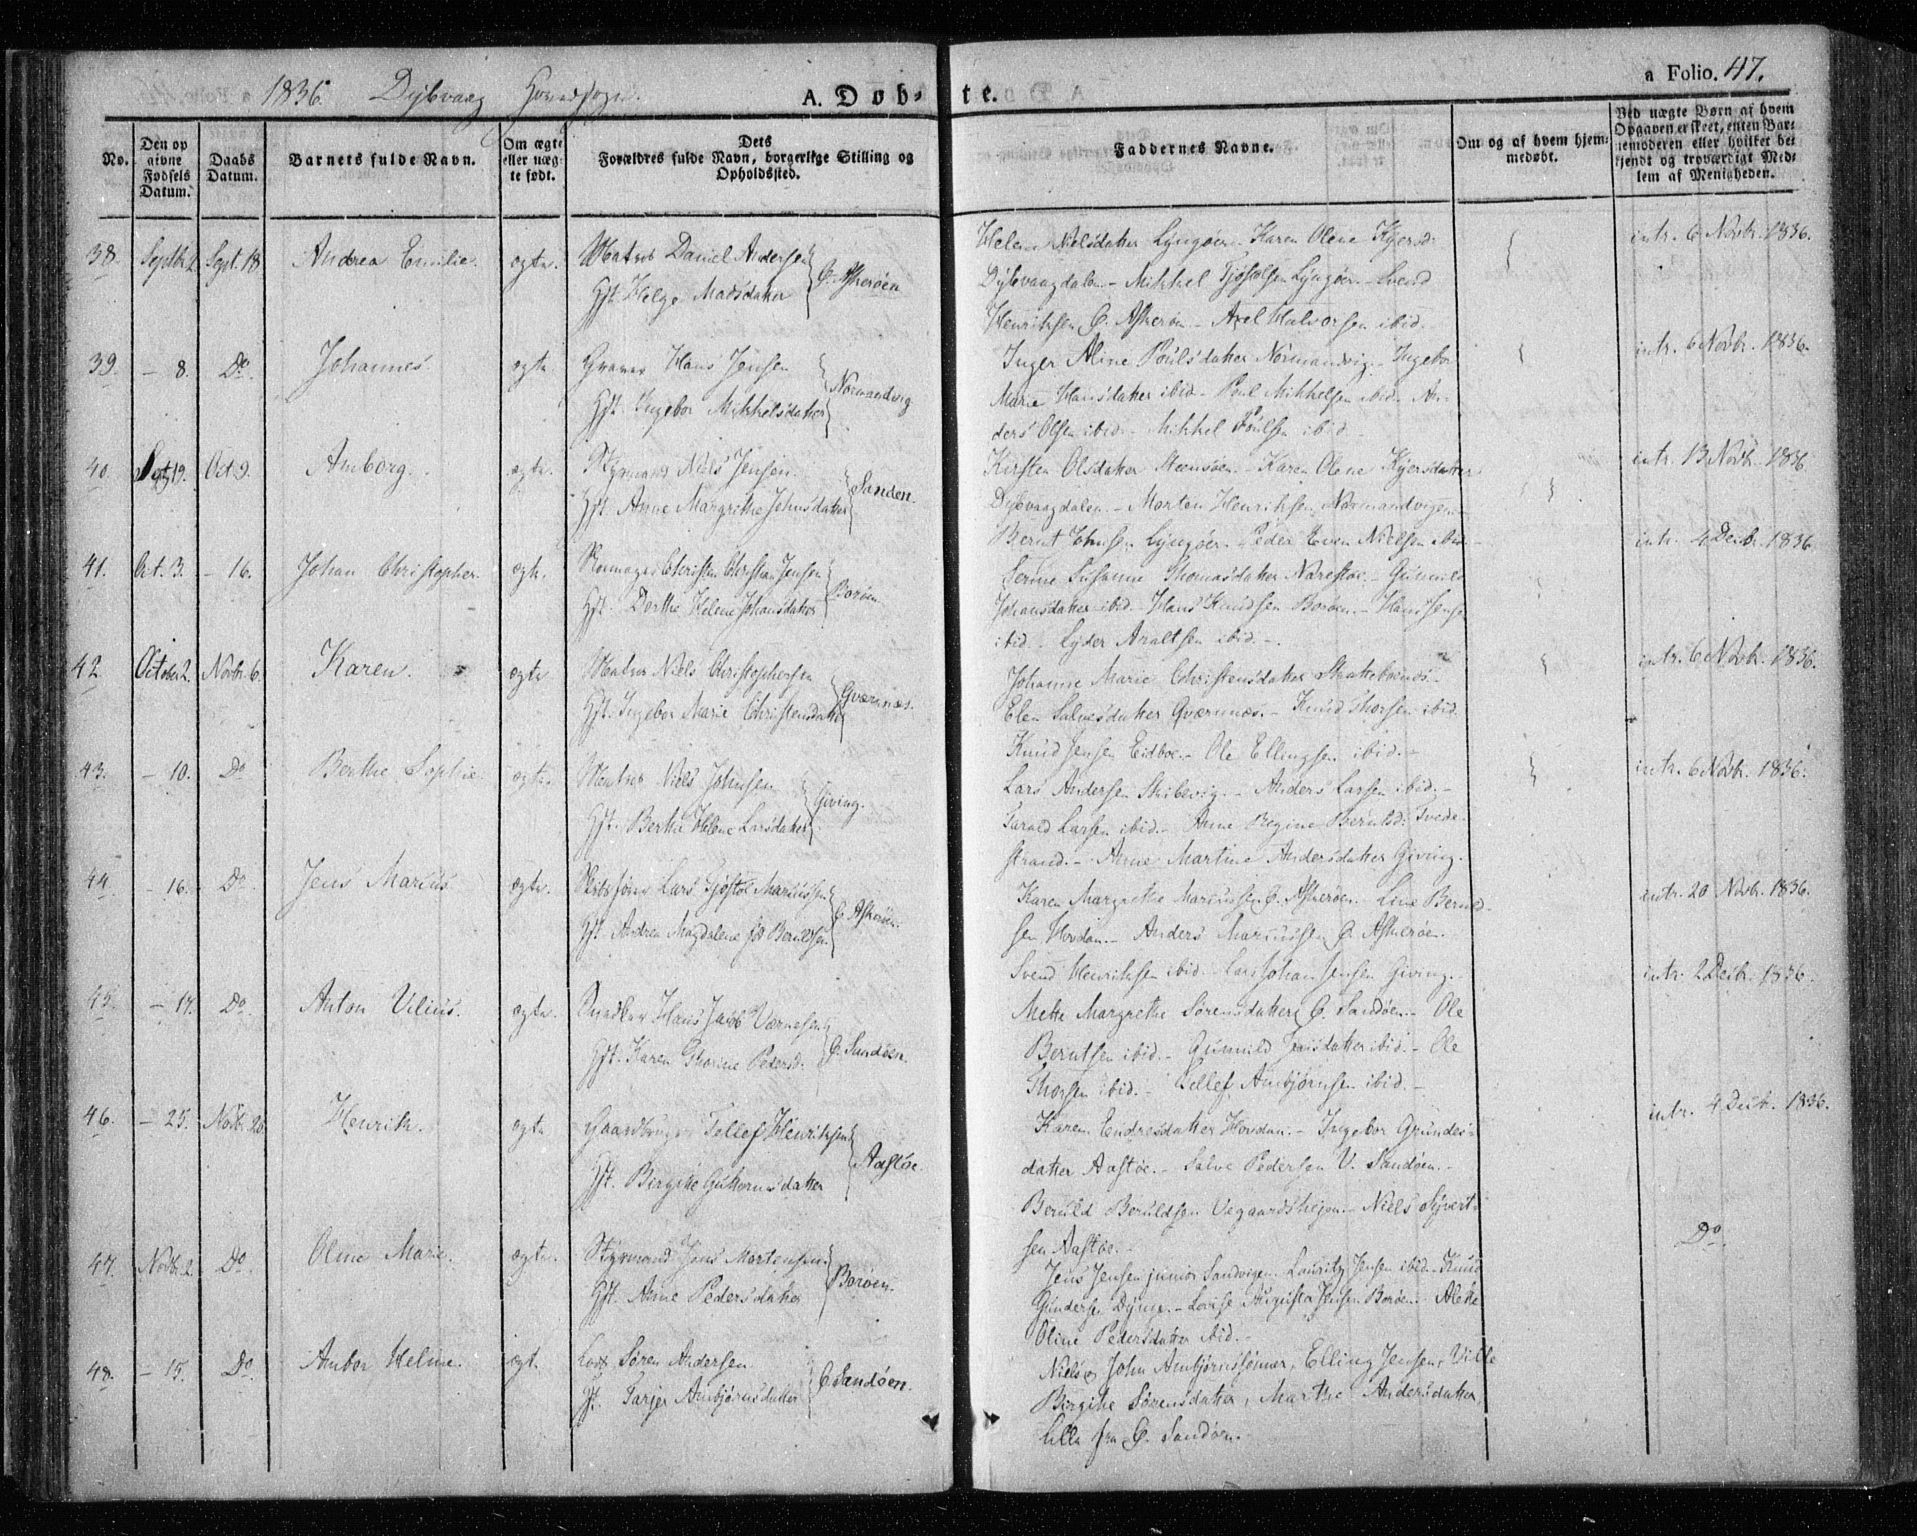 1836. Dybvaag Hovedsogn.
A. Døb-
te.
a Folio. 47.
No.
Den opgivne Fødsels Datum.
Daabs Datum.
Barnets fulde Navn.
Om ægte eller uægte født.
Dets Forældres fulde Navn, borgerlige Stilling og Opholdssted.
Faddernes Navne.
Om og af hvem hjemmedøbt.
Ved uægte Børn af hvem Opgaven er skeet, enten Barnemoderen eller hvilket bekjendt og troværdigt Medlem af Menigheden.
38. Septbr. 2. Sept. 18 Andrea Emilie. ægte. Matros Daniel Andersen
Hst. Helge Madsdatter
Ø. Askerøen
Helene Nielsdatter Lyngøer. Karen Olene Kjersd:
Dybvaagdalen. Mikkel Lyngøer. Svend
Henriksen Ø. Askerøn. Axel Halvorsen ibid.
intr. 6 Novbr. 1836.
39. - 8. Do. Johannes ægte Hans Jensen
Hst. Ingebor Mikkelsdatter
Normandvig
Inger Aline Poulsdatter Normandvig. Ingebor
Marie Hansdatter ibid. Poul Mikkelsen ibid. An-
ders Olsen ibid. Mikkel Poulsen ibid.
intr. 6 Novbr. 1836.
40. Sept. 19. Oct. 9. Amborg. ægte. Styrmand Niels Jensen.
Hst. Anne Margrithe Johnsdatter
Sanden.
Kirsten Olsdatter Karen Olene Kjersdatter
Dybvaagdalen. Morten Henriksen, Normandvigen.
Bernt Johnsen Lyngøer. Peder Even Nielsen ibid.
intr. 13 Novbr. 1836
41. Oct. 3. - 16. Johan Christopher. ægte. Christen Christian Jensen
Hst. Dorthe Helene Johansdatter
Borøen.
Serine Susanne Thomasdatter Narestøe. Gunnild
Johansdatter ibid. Hans Knudsen Borøen. Hans Jensen
ibid. Lyder Araltsen ibid.
intr. 4 Decbr. 1836
42. October 2. Novbr. 6. Karen. ægte Matros Niels Christophersen
Hst. Ingebor Marie Christensdatter
Qværnnæs.
Johanne Marie Christensdatter
Elen Salvesdatter Qværnnæs. Knud Thorsen ibid.
Knud Jensen Eidboe. Ole Ellingsen ibid.
intr. 6 Novbr. 1836.
43. - 10. Do Berthe Sophie. ægte. Matros Niels Johnsen
Hst. Berthe Helene Larsdatter
Giving.
Lars Andersen Skibevig. Anders Larsen ibid.
Tarald Larsen ibid. Anne Regine Berntsd: Tvede-
strand. Anne Martine Andersdatter Giving.
intr. 6 Novbr. 1836.
44. - 16. Do. Jens Marius ægte. Lars Tjøstol Mariussen
Hst. Andrea Magdalene Beruldsen
Ø. Askerøen.
Karen Margrethe Mariussen Ø. Askerøen. Line Beruld-
sen Hovdan. Anders Mariussen Ø. Askerøe.
Svend Henriksen ibid. Lars Johan Jensen Giving.
intr. 20 Novbr. 1836.
45. - 17. Do. Anton Vilius. ægte. Snedker Hans Jacob Værnesen
Hst. Karen Thorine Pedersd:
Ø. Sandøen.
Mette Margrethe Sørensdatter Ø. Sandøen. Ole
Berntsen ibid. Gunnild Jensdatter ibid. Ole
Thorsen ibid. Tellef Ambjørnsen ibid.
intr. 2 Decbr. 1836.
46. - 25. Novbr. 20 Henrik. ægte Gaardbruger Tellef Henriksen
Hst. Birgithe Guttormsdatter
Aastøe.
Karen Endresdatter Hovdan. Ingebor Grundes-
datter Aastøe. Salve Pedersen V. Sandøen.
Beruld Beruldsen Vegaardsheien. Niels Syvert-
sen Aastøe.
intr. 4 Decbr. 1836.
47. Novbr. 2. Do. Oline Marie. ægte. Styrmand Jens Mortensen
Hst. Anne Pedersdatter
Borøen.
Jens Jensen junior Sandvigen. Lauritz Jensen ibid. Knud
Gundersen Dynge. Lovise Augusta Jensen Borøen. Alette
Oline Pedersdatter ibid.
Do.
48. - 15. Do. Ambor Helene. ægt. Lods Søren Andersen.
Hst. Tarjer Ambjørnsdatter
Ø Sandøen.
Niels & John Ambjørnssønner, Elling Jensen,
Birgithe Sørensdatter, Marthe Andersdatter,
alle fra Ø. Sandøen.